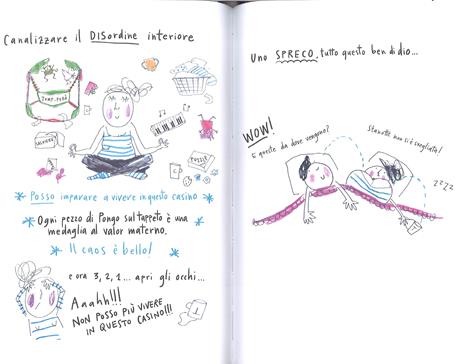 Canalizzare il DISordine interiore
JUMP-POGO
SALVIETTE
PUZZLE
* Posso imparare a vivere in questo casino *
* Ogni pezzo di Pongo sul tappeto è una
medaglia al valor materno.
* Il caos è bello! *
e ora 3, 2, 1... apri gli occhi...
Aaahh!!!
NON POSSO PIÙ VIVERE
IN QUESTO CASINO!!!
Uno SPRECO, tutto questo ben di dio...
WOW!
E queste da dove vengono?
Stanotte non si è svegliata!
ZZZZ